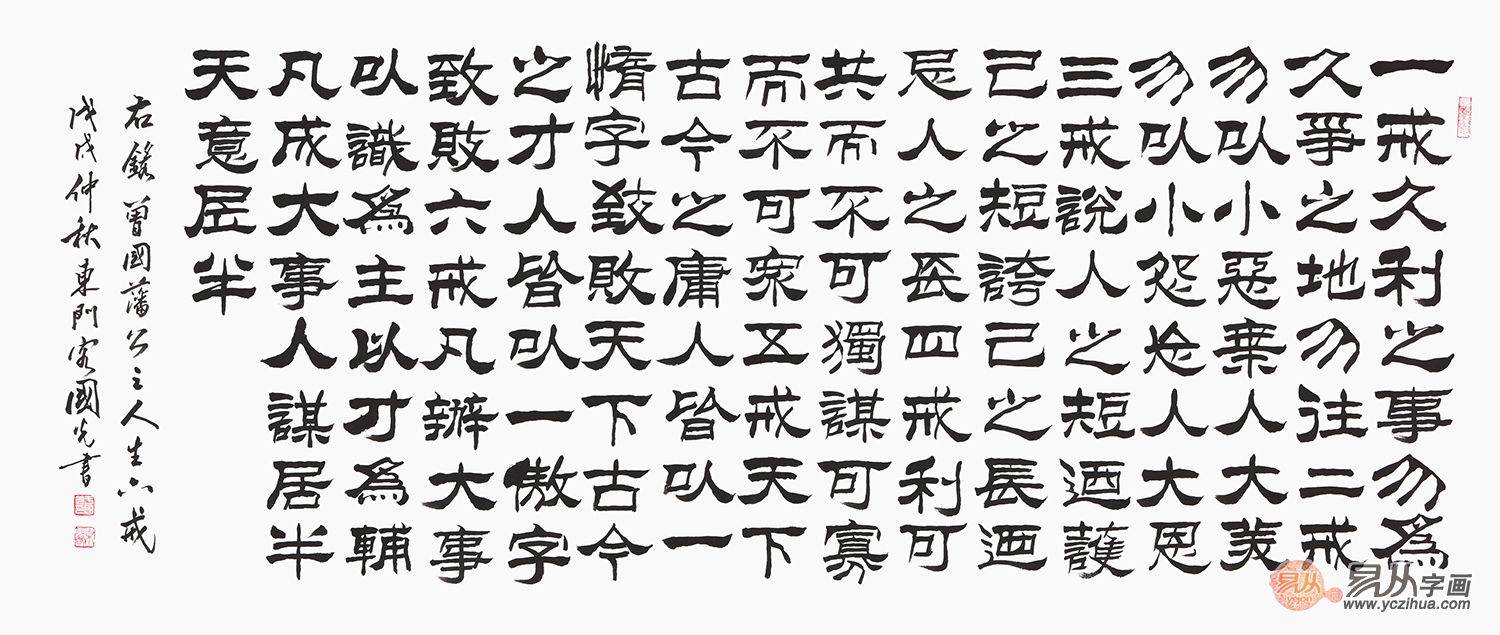 一戒久利之事勿為
久爭之地勿往二戒
勿以小惡棄人大美
勿以小怨忘人大恩
三戒說人之短迺護
己之短誇己之長迺
忌人之長四戒利可
共而不可獨謀可寡
而不可眾五戒天下
古今之庸人皆以一
惰字致敗天下古今
之才人皆以一傲字
致敗六戒凡辦大事
以識為主以才為輔
凡成大事人謀居半
天意居半
右錄曾國藩公之人生六戒
戊戌仲秋東門客國光書
易从
易从字画
www.yczihua.com